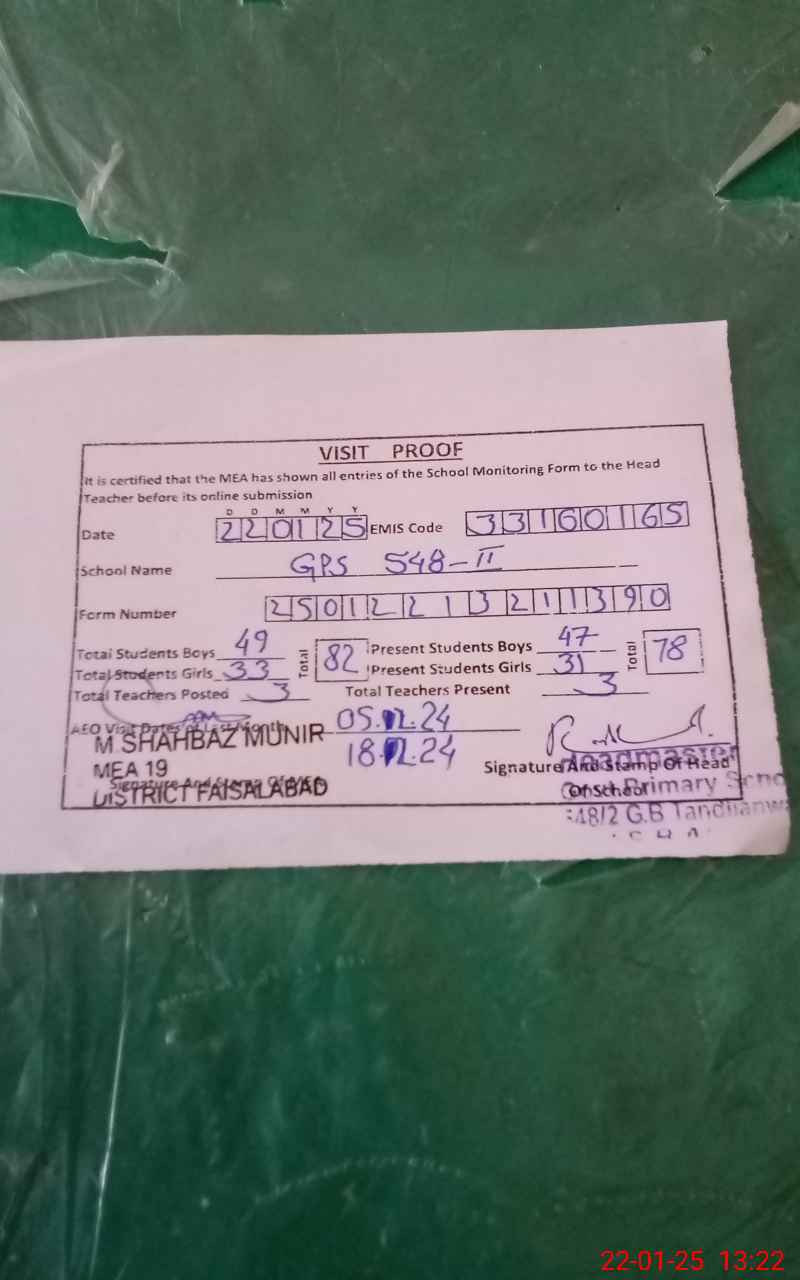 VISIT PROOF
It is certified that the MEA has shown all entries of the School Monitoring Form to the Head
Teacher before its online submission
D D M M Y Y
Date 220125 EMIS Code 33160165
School Name GPS 548-II
Form Number 25012213211390
Total Students Boys 49 Total 82 Present Students Boys 47 Total 78
Total Students Girls 33 Present Students Girls 31
Total Teachers Posted 3 Total Teachers Present 3
AEO Visit Dates of Last Month 05.12.24
18.12.24
M.SHAHBAZ MUNIR
MEA 19
DISTRICT FAISALABAD
Signature And Stamp Of
Signature And Stamp Of Head
Of School
Headmaster
Primary
48/2 G.B Tandlianw
22-01-25 13:22